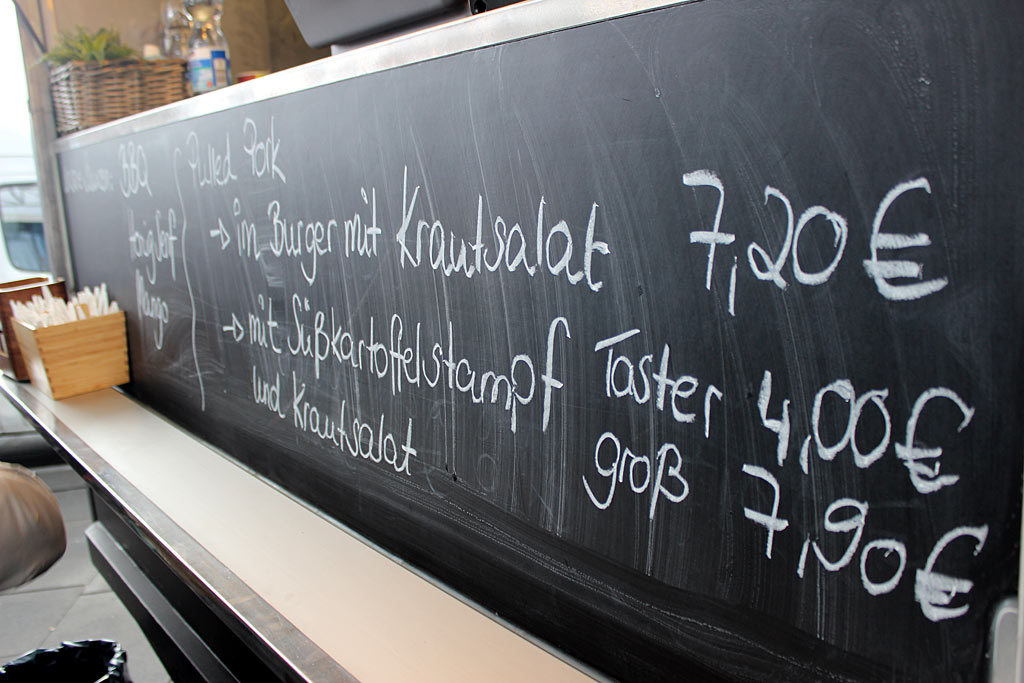 BBQ
Honig Senf
Mango
Pulled Pork
→ im Burger mit Krautsalat 7,20 €
→ mit Süßkartoffelstampf Taster 4,00 €
und Krautsalat groß 7,90 €